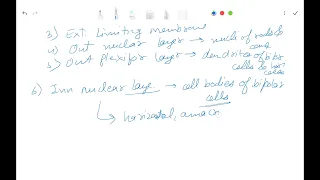 3) Ext. Limiting membrane
4) Out nuclear layer → nuclei of rods &
cone
5) Out plexifor layer → dendrites of bipr
cells & hori
cells
6) Inn nuclear laye → cell bodies of bipolar
cells
↳ horizontal, amacr